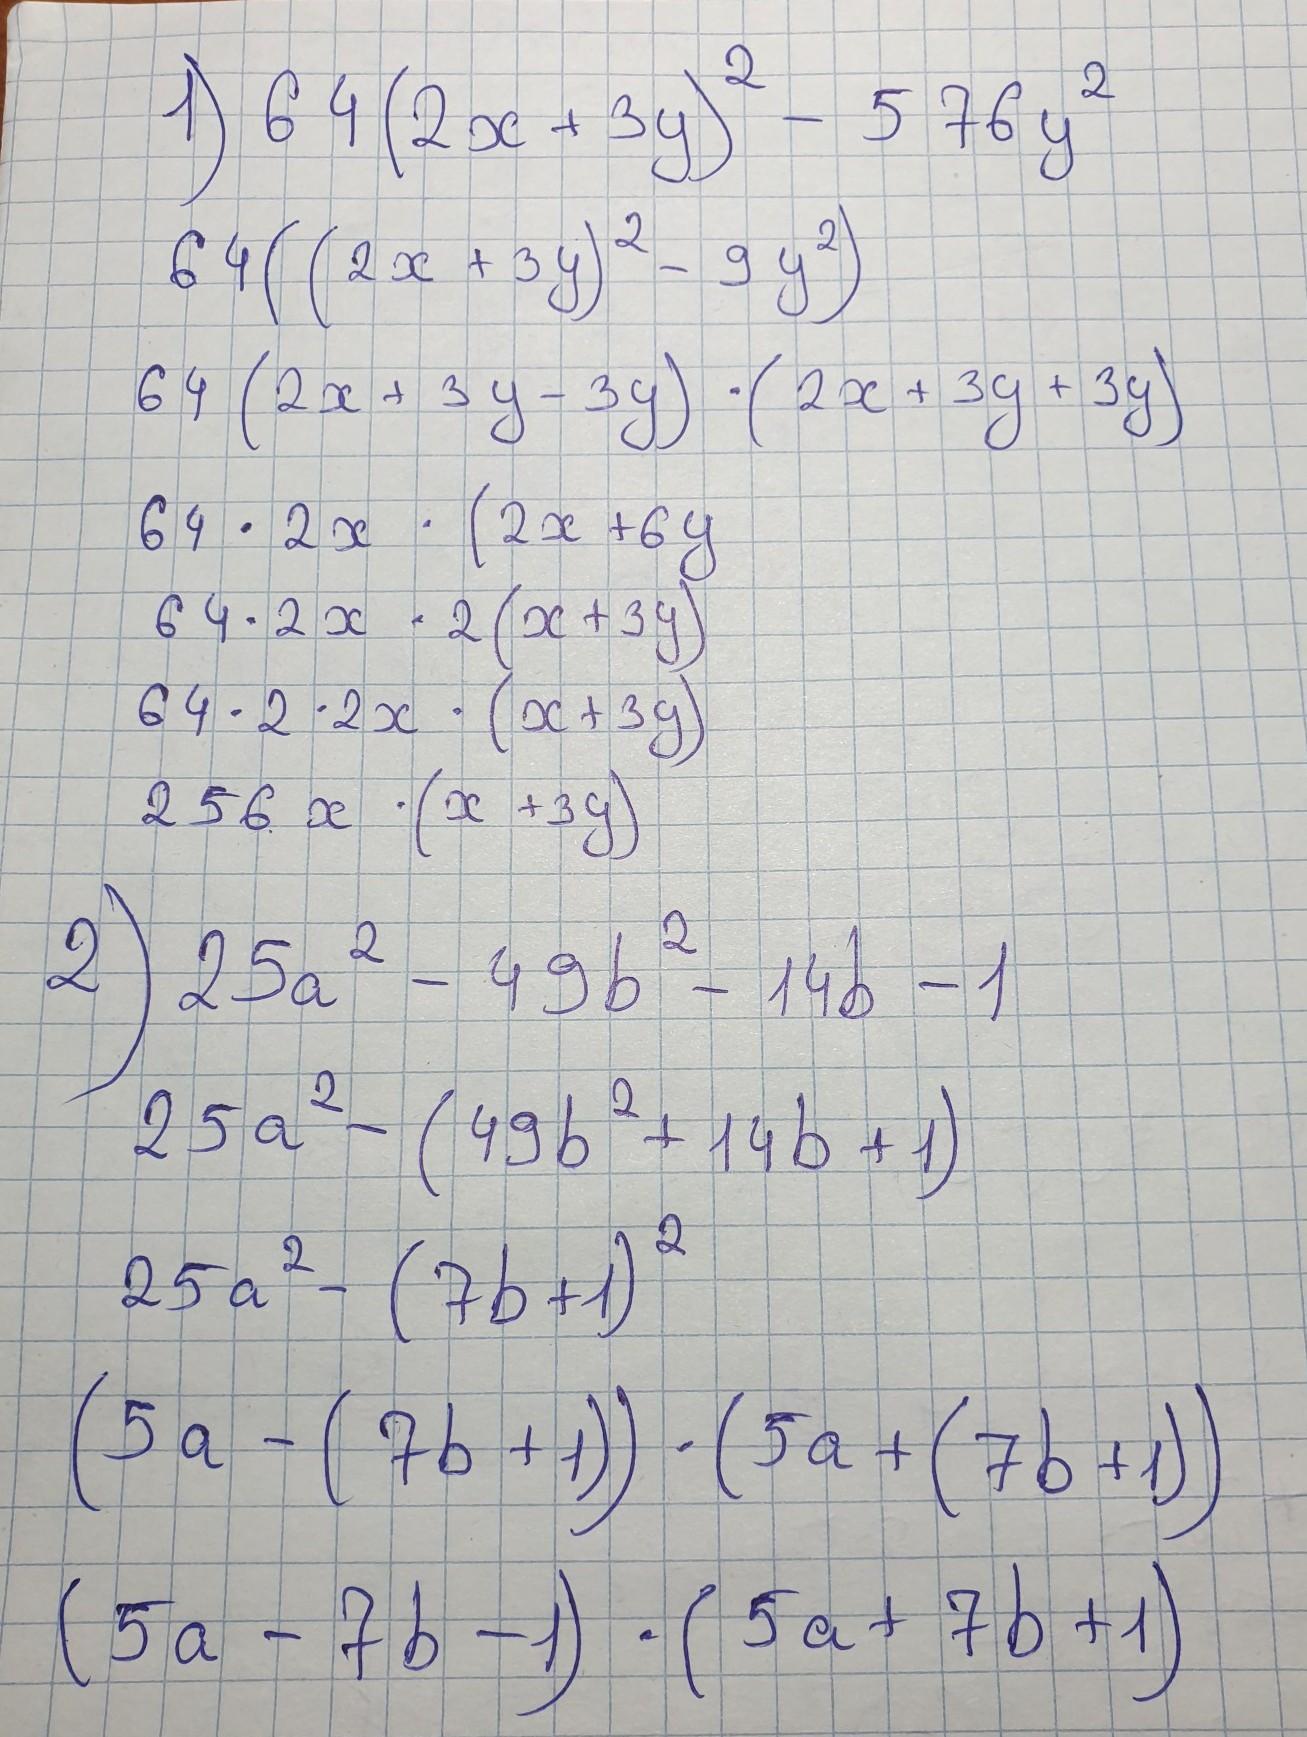 1) 64(2x + 3y)² - 576y²
64((2x + 3y)² - 9y²)
64(2x + 3y - 3y) · (2x + 3y + 3y)
64 · 2x · (2x + 6y
64 · 2x · 2(x + 3y)
64 · 2 · 2x · (x + 3y)
256x · (x + 3y)
2) 25a² - 49b² - 14b - 1
25a² - (49b² + 14b + 1)
25a² - (7b + 1)²
(5a - (7b + 1)) · (5a + (7b + 1))
(5a - 7b - 1) · (5a + 7b + 1)